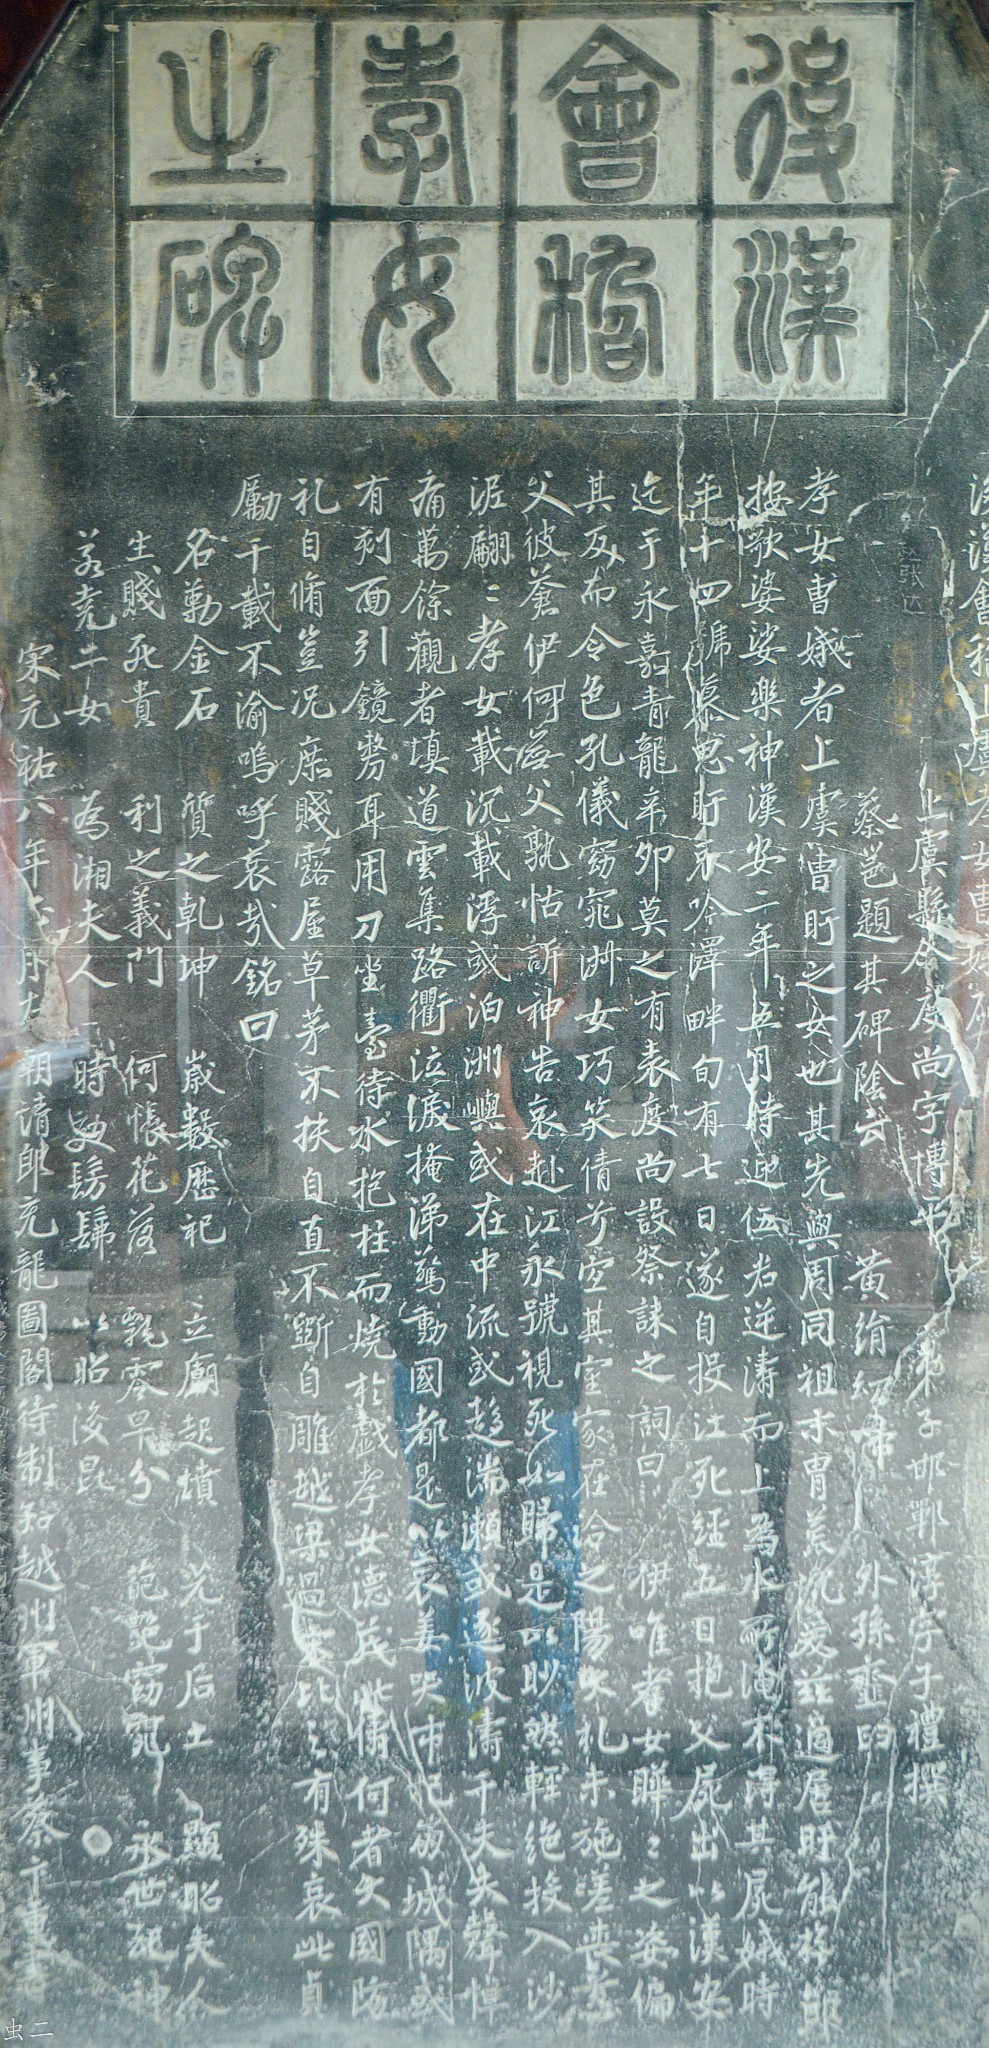 後漢會稽孝女之碑
後漢會稽上虞孝女曹娥碑
上虞縣令度尚字博平 弟子邯鄲淳字子禮撰
蔡邕題其碑陰云 黃絹幼婦 外孫齏臼
孝女曹娥者上虞曹盱之女也其先與周同祖末胄荒沉爰茲適居盱能撫節
按歌婆娑樂神漢安二年五月時迎伍君逆濤而上為水所淹不得其屍娥時
年十四號慕思盱哀吟澤畔旬有七日遂自投江死經五日抱父屍出以漢安
迄于永嘉青龍辛卯莫之有表度尚設祭誄之詞曰 伊唯孝女曄〻之姿偏
其反而令色孔儀窈窕淑女巧笑倩兮宜其室家在洽之陽待礼未施嗟喪蒼
父彼蒼伊何無父孰怙訴神告哀赴江永號視死如歸是以眇然輕絕投入沙
泥翩〻孝女載沉載浮或泊洲嶼或在中流或趨湍瀨或逐波濤千夫失聲悼
痛萬餘觀者填道雲集路衢泣淚掩涕驚動國都是以哀姜哭市杞崩城隅或
有剋面引鏡剺耳用刀坐臺待水抱柱而燒於戲孝女德茂此儔何者大國防
礼自脩豈況庶賤露屋草茅不扶自直不斲自雕越梁過宋比之有殊哀此貞
厲千載不渝嗚呼哀哉銘曰
名勒金石 質之乾坤 歲數歷祀 立廟起墳 光于后土 顯昭夫人
生賤死貴 利之義門 何悵花落 飄零早分 葩艷窈窕 永世配神
若堯二女 為湘夫人 時效髣髴 以昭後昆
宋元祐八年正月左朝請郎充龍圖閣待制知越州軍州事蔡卞重書
虫二